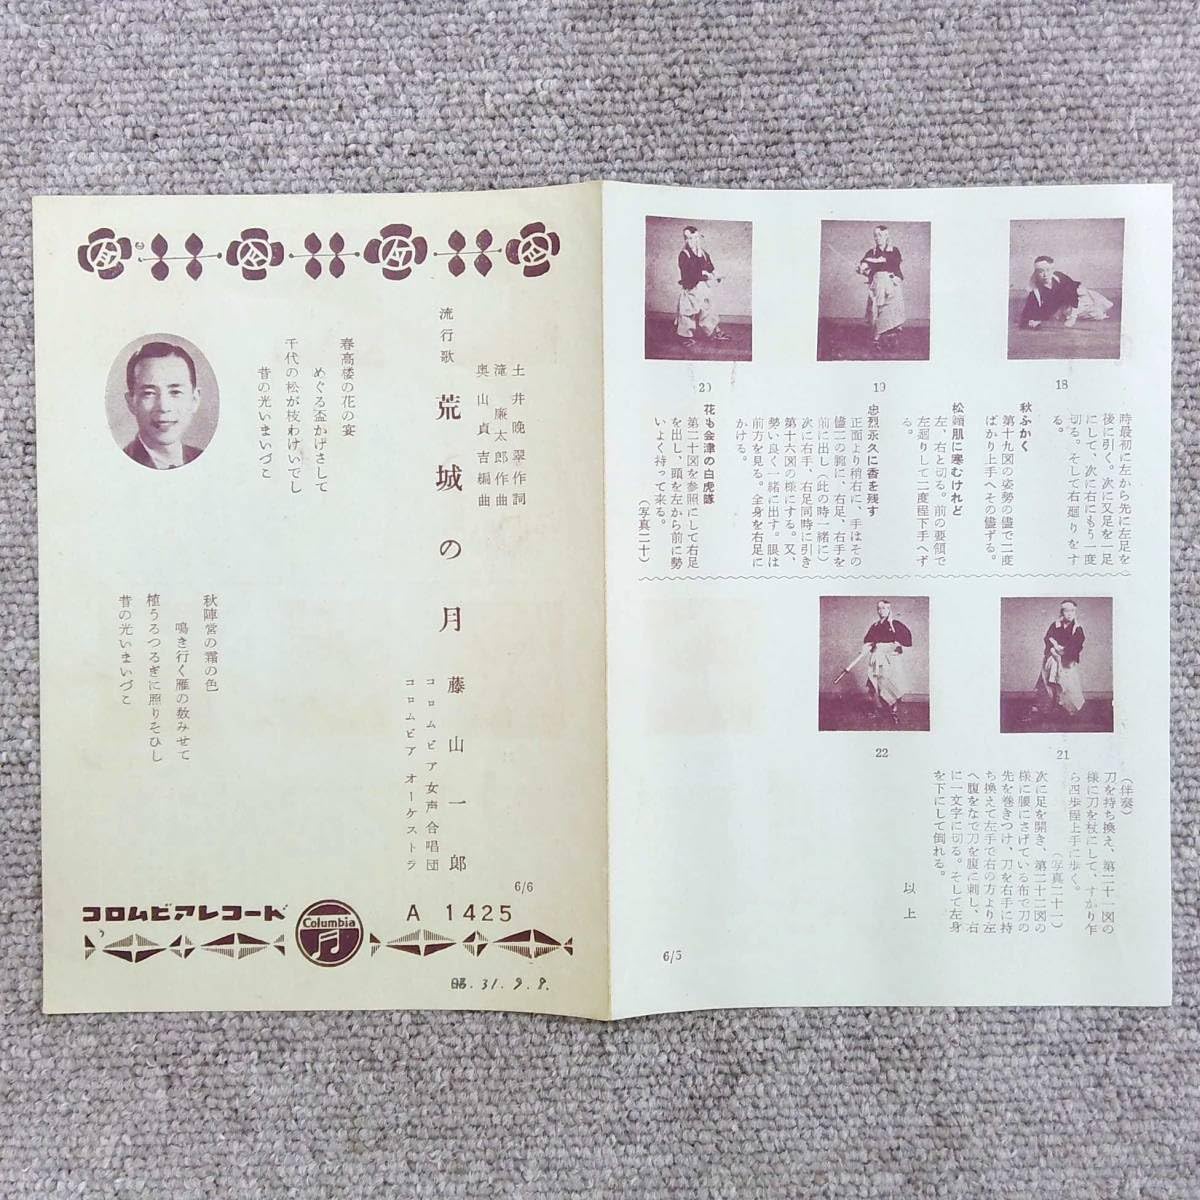 18
時最初に左から先に左足を
後に引く。次に又足を一足
にして、次に右にもう一度
切る。そして右廻りをす
る。
秋ふかく
第十九図の姿勢の儘で二度
ばかり上手へその儘ずる。
松韻肌に寒むけれど
左、右と切る。前の要領で
左廻りして二度程下手へず
る。
19
忠烈永久に香を残す
正面より稍右に、手はその
儘二の腕に、右足、右手を
前に出し(此の時一緒に)
次に右手、右足同時に引き
第十六図の様にする。又、
勢い良く一緒に出す。眼は
前方を見る。全身を右足に
かける。
20
花も会津の白虎隊
第二十図を参照にして右足
を出し、頭を左から前に勢
いよく持って来る。
(写真二十)
21
(伴奏)
刀を持ち換え、第二十一図の
様に刀を杖にして、すかり乍
ら四歩程上手に歩く。
(写真二十一)
次に足を開き、第二十二図の
様に腰にさげている布で刀の
先を巻きつけ、刀を右手に持
ち換えて左手で右の方より左
へ腹をなで刀を腹に刺し、右
に一文字に切る。そして左身
を下にして倒れる。
以上
22
6/5
土井晩翠作詞
滝廉太郎作曲
奥山貞吉編曲
流行歌
荒城の月
藤山一郎
コロムビア女声合唱団
コロムビアオーケストラ
春高楼の花の宴
めぐる盃かげさして
千代の松が枝わけいでし
昔の光いまいづこ
秋陣営の霜の色
鳴き行く雁の数みせて
植うるつるぎに照りそひし
昔の光いまいづこ
6/6
コロムビアレコード
Columbia
A 1425
昭.31.9.8.